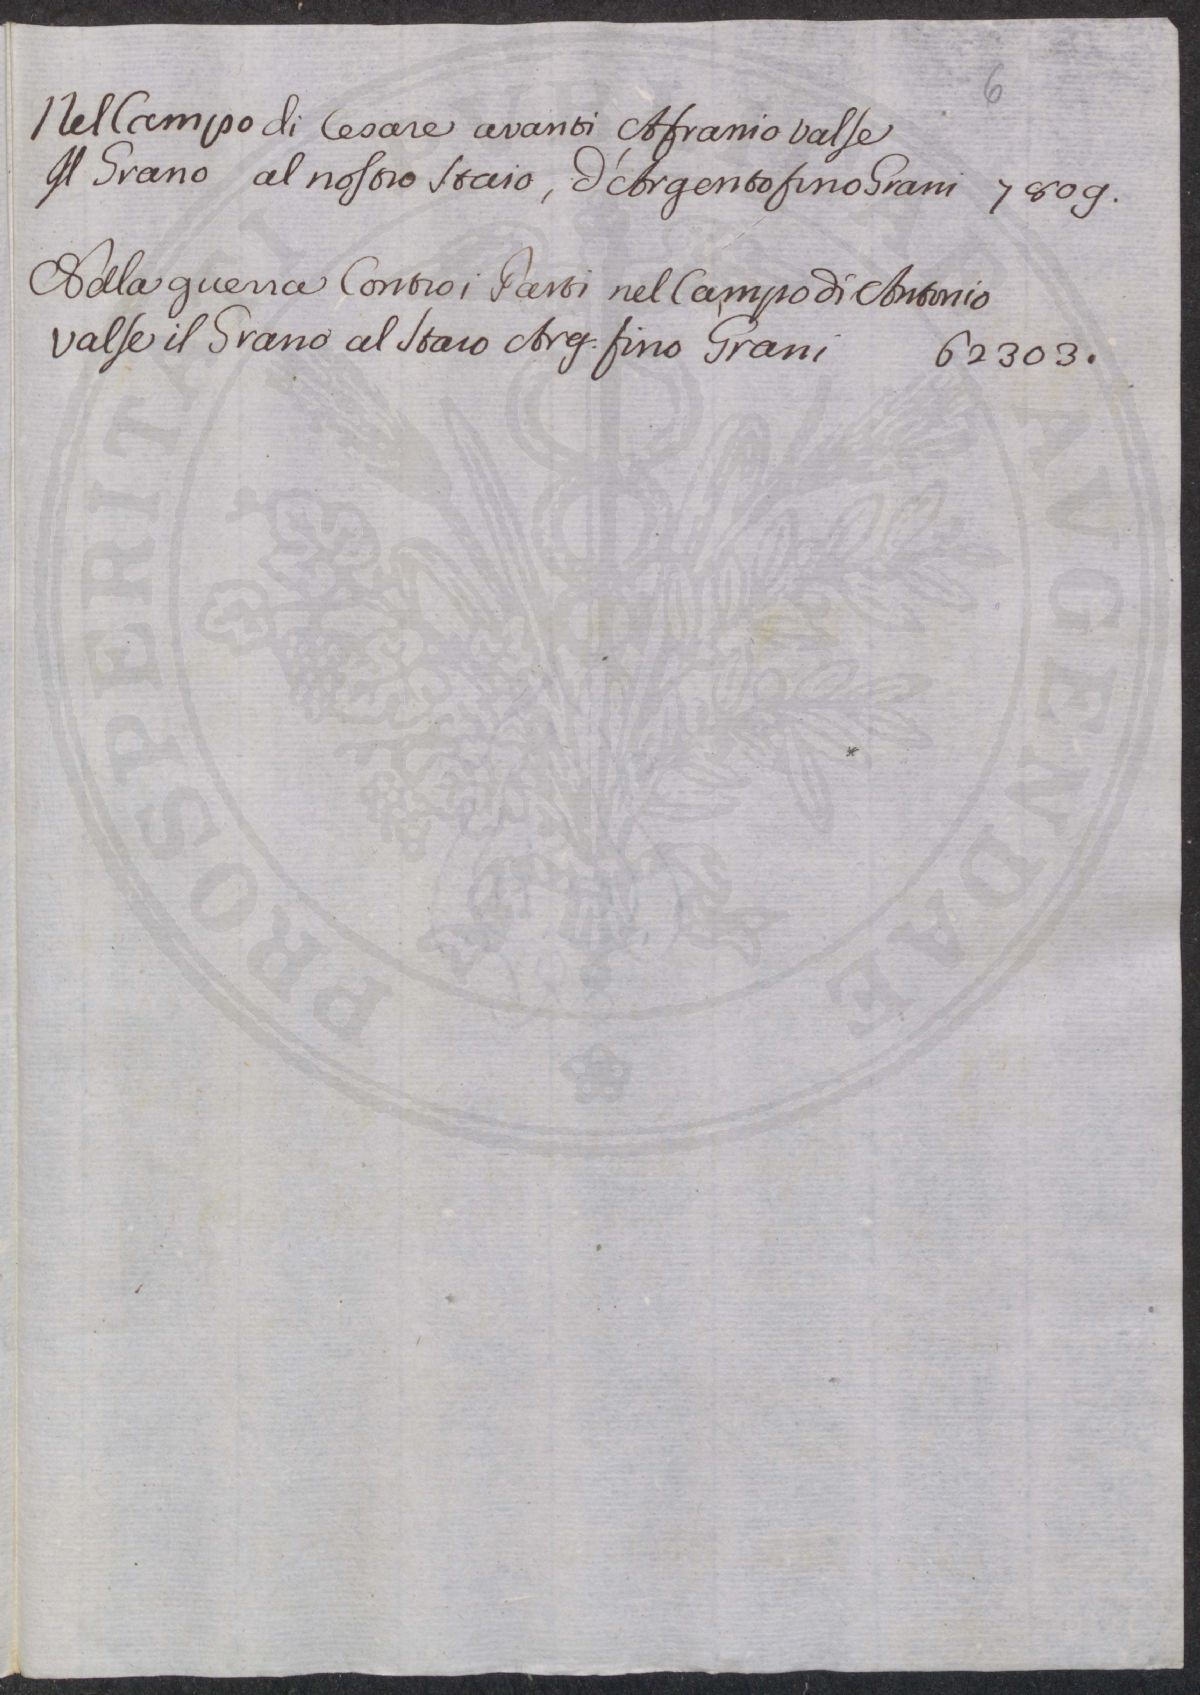 6
Nel Campo di Cesare avanti Afranio valse
Il Grano al nostro Staio, d'Argento fino Grani 7809.
Nella guerra Contro i Parti nel Campo di Antonio
valse il Grano al Staio Arg. fino Grani 62303.
PROSPERITATI PUBLICAE AVGENDAE